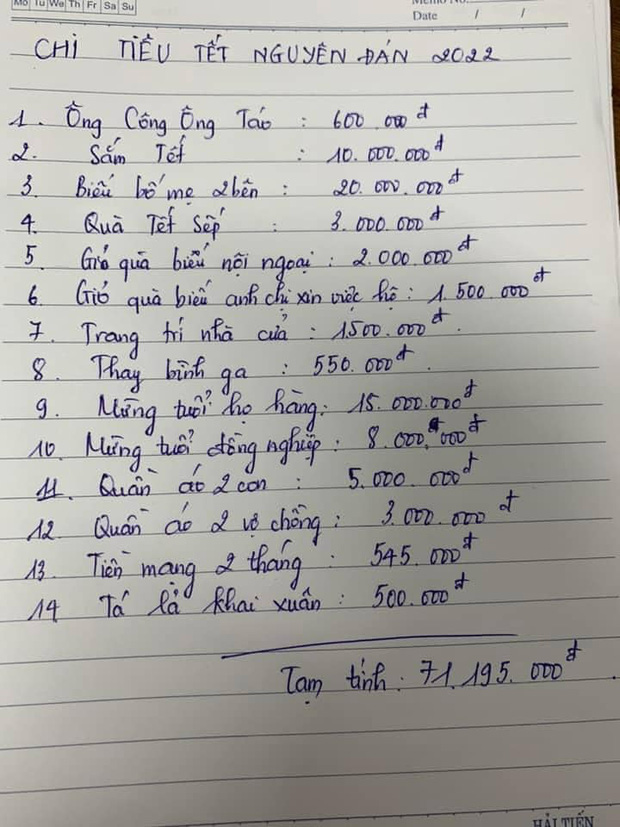 Mo Tu We Th Fr Sa Su
Memo No.
Date / /
CHI TIÊU TẾT NGUYÊN ĐÁN 2022
1. Ông Công Ông Táo : 600.000đ
2. Sắm Tết : 10.000.000đ
3. Biếu bố mẹ 2 bên : 20.000.000đ
4. Quà Tết Sếp : 3.000.000đ
5. Giỏ quà biếu nội ngoại : 2.000.000đ
6. Giỏ quà biếu anh chị xin việc hộ : 1.500.000đ
7. Trang trí nhà cửa : 1500.000đ.
8. Thay bình ga : 550.000đ.
9. Mừng tuổi họ hàng: 15.000.000đ
10. Mừng tuổi đồng nghiệp : 8.000.000đ
11. Quần áo 2 con : 5.000.000đ
12. Quần áo 2 vợ chồng : 3.000.000đ
13. Tiền mạng 2 tháng : 545.000đ
14 Tá lả khai xuân : 500.000đ
Tạm tính : 71.195.000đ.
HẢI TIẾN